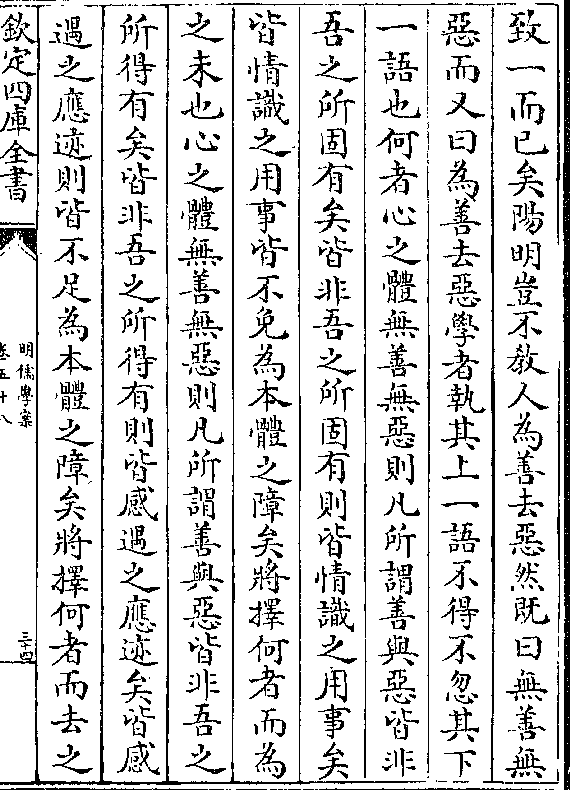 致一而已矣陽明豈不教人為善去惡然既曰無善無
惡而又曰為善去惡學者執其上一語不得不忽其下
一語也何者心之體無善無惡則凡所謂善與惡皆非
吾之所固有矣皆非吾之所固有則皆情識之用事矣
皆情識之用事皆不免為本體之障矣將擇何者而為
之未也心之體無善無惡則凡所謂善與惡皆非吾之
所得有矣皆非吾之所得有則皆感遇之應迹矣皆感
遇之應迹則皆不足為本體之障矣將擇何者而去之
欽定四庫全書
明儒學案
卷五十八
三十四